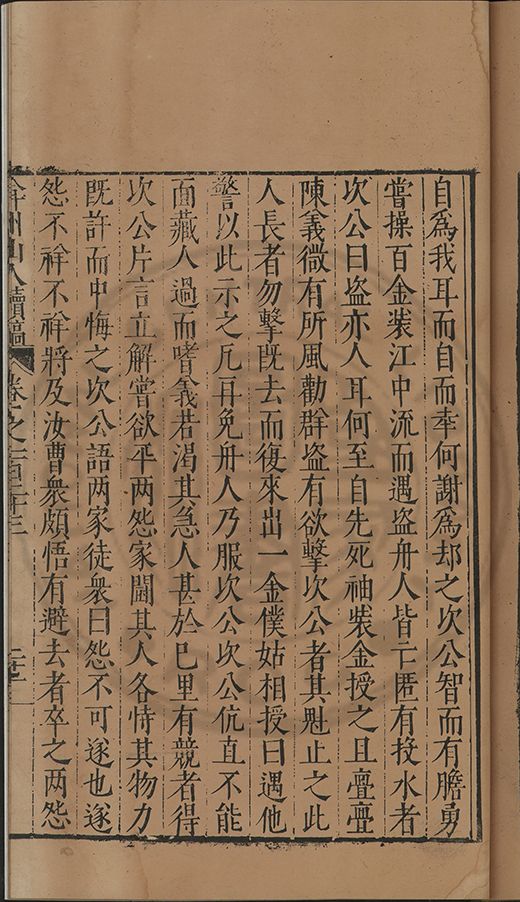 自為我耳而自而幸何謝為却之次公智而有膽勇
嘗操百金裝江中流而遇盜舟人皆亡匿有投水者
次公曰盜亦人耳何至自先死袖裝金授之且亹亹
陳義微有所風勸群盜有欲擊次公者其魁止之此
人長者勿擊既去而復來出一金僕姑相授曰遇他
警以此示之凡再免舟人乃服次公次公伉直不能
面藏人過而嗜義若渴其急人甚於己里有競者得
次公片言立解嘗欲平两怨家鬬其人各恃其物力
既許而中悔之次公語两家徒衆曰怨不可遂也遂
怨不祥不祥將及汝曹衆頗悟有避去者卒之两怨
弇州山人續稿 卷之一百十三